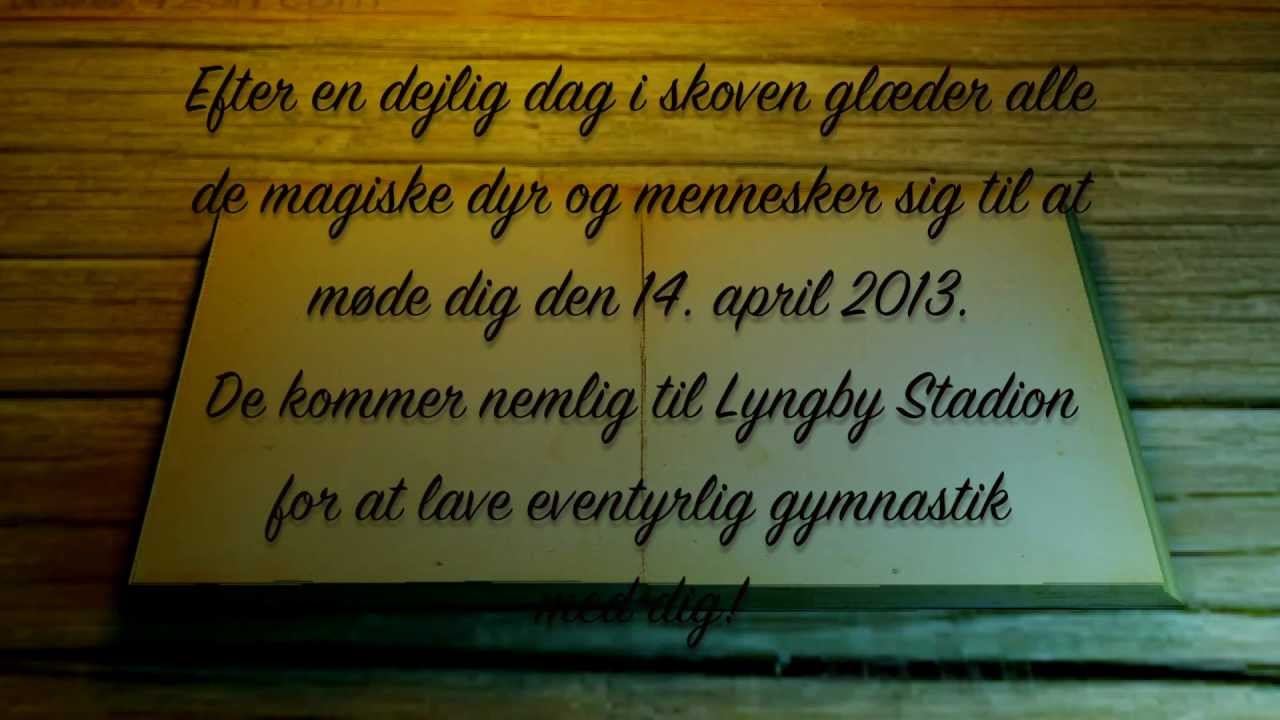 Efter en dejlig dag i skoven glæder alle
de magiske dyr og mennesker sig til at
møde dig den 14. april 2013.
De kommer nemlig til Lyngby Stadion
for at lave eventyrlig gymnastik
med dig!